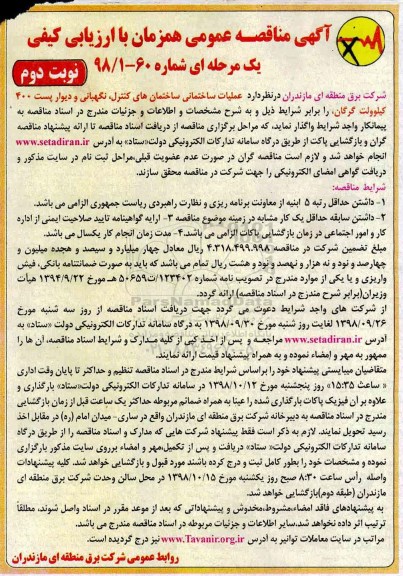 آگهی مناقصه عمومی همزمان با ارزیابی کیفی
یک مرحله ای شماره ۶۰-۹۸/۱
نوبت دوم
شرکت برق منطقه ای مازندران درنظردارد عملیات ساختمانی ساختمان های کنترل، نگهبانی و دیوار پست ۴۰۰
کیلوولت گرگان، را برابر شرایط ذیل و به شرح مشخصات و اطلاعات و جزئیات مندرج در اسناد مناقصه به
پیمانکار واجد شرایط واگذار نماید، که مراحل برگزاری مناقصه از دریافت اسناد مناقصه تا ارائه پیشنهاد مناقصه
گران و بازگشایی پاکت از طریق درگاه سامانه تدارکات الکترونیکی دولت«ستاد» به آدرس www.setadiran.ir
انجام خواهد شد و لازم است مناقصه گران در صورت عدم عضویت قبلی،مراحل ثبت نام در سایت مذکور و
دریافت گواهی امضای الکترونیکی را جهت شرکت در مناقصه محقق سازند.
شرایط مناقصه:
۱- داشتن حداقل رتبه ۵ ابنیه از معاونت برنامه ریزی و نظارت راهبردی ریاست جمهوری الزامی می باشد.
۲- داشتن سابقه حداقل یک کار مشابه در زمینه موضوع مناقصه ۳- ارایه گواهینامه تایید صلاحیت ایمنی از اداره
کار و امور اجتماعی در زمان بازگشایی پاکات الزامی می باشد.۴- مدت زمان انجام کار یکسال می باشد.
مبلغ تضمین شرکت در مناقصه ۴.۳۱۸.۴۹۹.۹۹۸ ریال معادل چهار میلیارد و سیصد و هجده میلیون و
چهارصد و نود و نه هزار و نهصد و نود و هشت ریال تمام می باشد که باید به صورت ضمانتنامه بانکی، فیش
واریزی و یا یکی از موارد مندرج در تصویب نامه شماره ۱۲۳۴۰۲/ت۵۰۶۵۹ هـ مورخ ۱۳۹۴/۹/۲۲ هیأت
وزیران(برابر شرح مندرج در اسناد مناقصه) ارائه گردد.
از شرکت های واجد شرایط دعوت می گردد جهت دریافت اسناد مناقصه از روز سه شنبه مورخ
۱۳۹۸/۰۹/۲۶ لغایت روز شنبه مورخ ۱۳۹۸/۰۹/۳۰ به درگاه سامانه تدارکات الکترونیکی دولت «ستاد» به
آدرس www.setadiran.ir مراجعه و پس از اخذ کپی از کلیه مدارک و شرایط اسناد مناقصه، آن ها را
ممهور به مهر و امضاء نموده و به همراه پیشنهاد قیمت ارائه نمایند.
متقاضیان میبایستی پیشنهاد خود را براساس شرایط مندرج در اسناد مناقصه تنظیم و حداکثر تا پایان وقت اداری
« ساعت ۱۵:۳۵» روز پنجشنبه مورخ ۱۳۹۸/۱۰/۱۲ در سامانه تدارکات الکترونیکی دولت«ستاد» بارگذاری و
علاوه بر آن فیزیک پاکات بارگذاری شده را عینا به همراه ضمائم مربوطه حداکثر یک ساعت قبل از زمان بازگشایی
مندرج در اسناد مناقصه به دبیرخانه شرکت برق منطقه ای مازندران واقع در ساری- میدان امام (ره) در مقابل اخذ
رسید تحویل نمایند. لازم به ذکر است فقط پیشنهاد شرکت هایی که مدارک و اسناد مناقصه را از طریق درگاه
سامانه تدارکات الکترونیکی دولت« ستاد» دریافت و پس از تکمیل،مهر و امضاء برروی سایت مذکور بارگزاری
نموده و مشخصات خود را بطور کامل ثبت و درج کرده باشند مورد قبول و بازگشایی خواهد شد. کلیه پیشنهادات
واصله رأس ساعت ۸:۳۰ صبح روز یکشنبه مورخ ۱۳۹۸/۱۰/۱۵ در محل سالن وحدت شرکت برق منطقه ای
مازندران (طبقه دوم)بازگشایی خواهد شد.
به پیشنهادهای فاقد امضاء،مشروط،مخدوش و پیشنهاداتی که بعد از موعد مقرر در اسناد واصل شوند، مطلقاً
ترتیب اثر داده نخواهد شد.سایر اطلاعات و جزئیات مربوطه در اسناد مناقصه مندرج می باشد.
مراتب در سایت معاملات توانیر به آدرس www.Tavanir.org.ir نیز درج گردیده است.
روابط عمومی شرکت برق منطقه ای مازندران